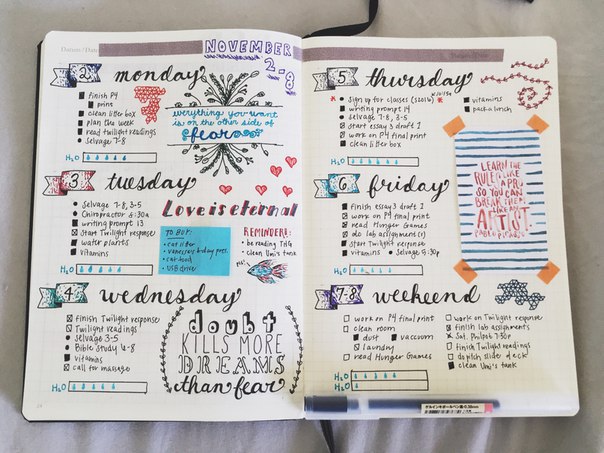 Datum / Date
NOVEMBER
2-8
2 monday
finish P4
print
clean litter box
plan the week
read Twilight readings
Selvage 7-8
H2O
everything you want
is on the other side of
fear
3 tuesday
Selvage 7-8, 3-5
Chiropractor 6:30a
writing prompt 13
Start Twilight response
water plants
vitamins
H2O
Love is eternal
TO BUY:
cat litter
vanessa's bday pres.
cat food
USB drive
REMINDERS:
be reading THG
clean Umi's tank
4 wednesday
finish Twilight response
Twilight readings
selvage 3-5
Bible Study 6-8
vitamins
call for massage
H2O
doubt
KILLS MORE
DREAMS
than fear
5 thursday
sign up for classes (S2016)
writing prompt 14
selvage 7-8, 3-5
start essay 3 draft 1
work on P4 final print
clean litter box
vitamins
pack a lunch
H2O
6 friday
finish essay 3 draft 1
work on P4 final print
read Hunger Games
do lab assignment(s)
start Twilight response
vitamins
Selvage
H2O
LEARN THE
RULES LIKE
A PRO
SO YOU CAN
BREAK THEM
LIKE AN
ARTIST
PABLO PICASSO
7-8 weekend
work on P4 final print
clean room
dust
vaccoom
laundry
read Hunger Games
work on Twilight response
finish lab assignments
Sat. Philsb 7:30p
finish Twilight readings
do pitch slide deck
clean Umi's tank
H2O
H2O